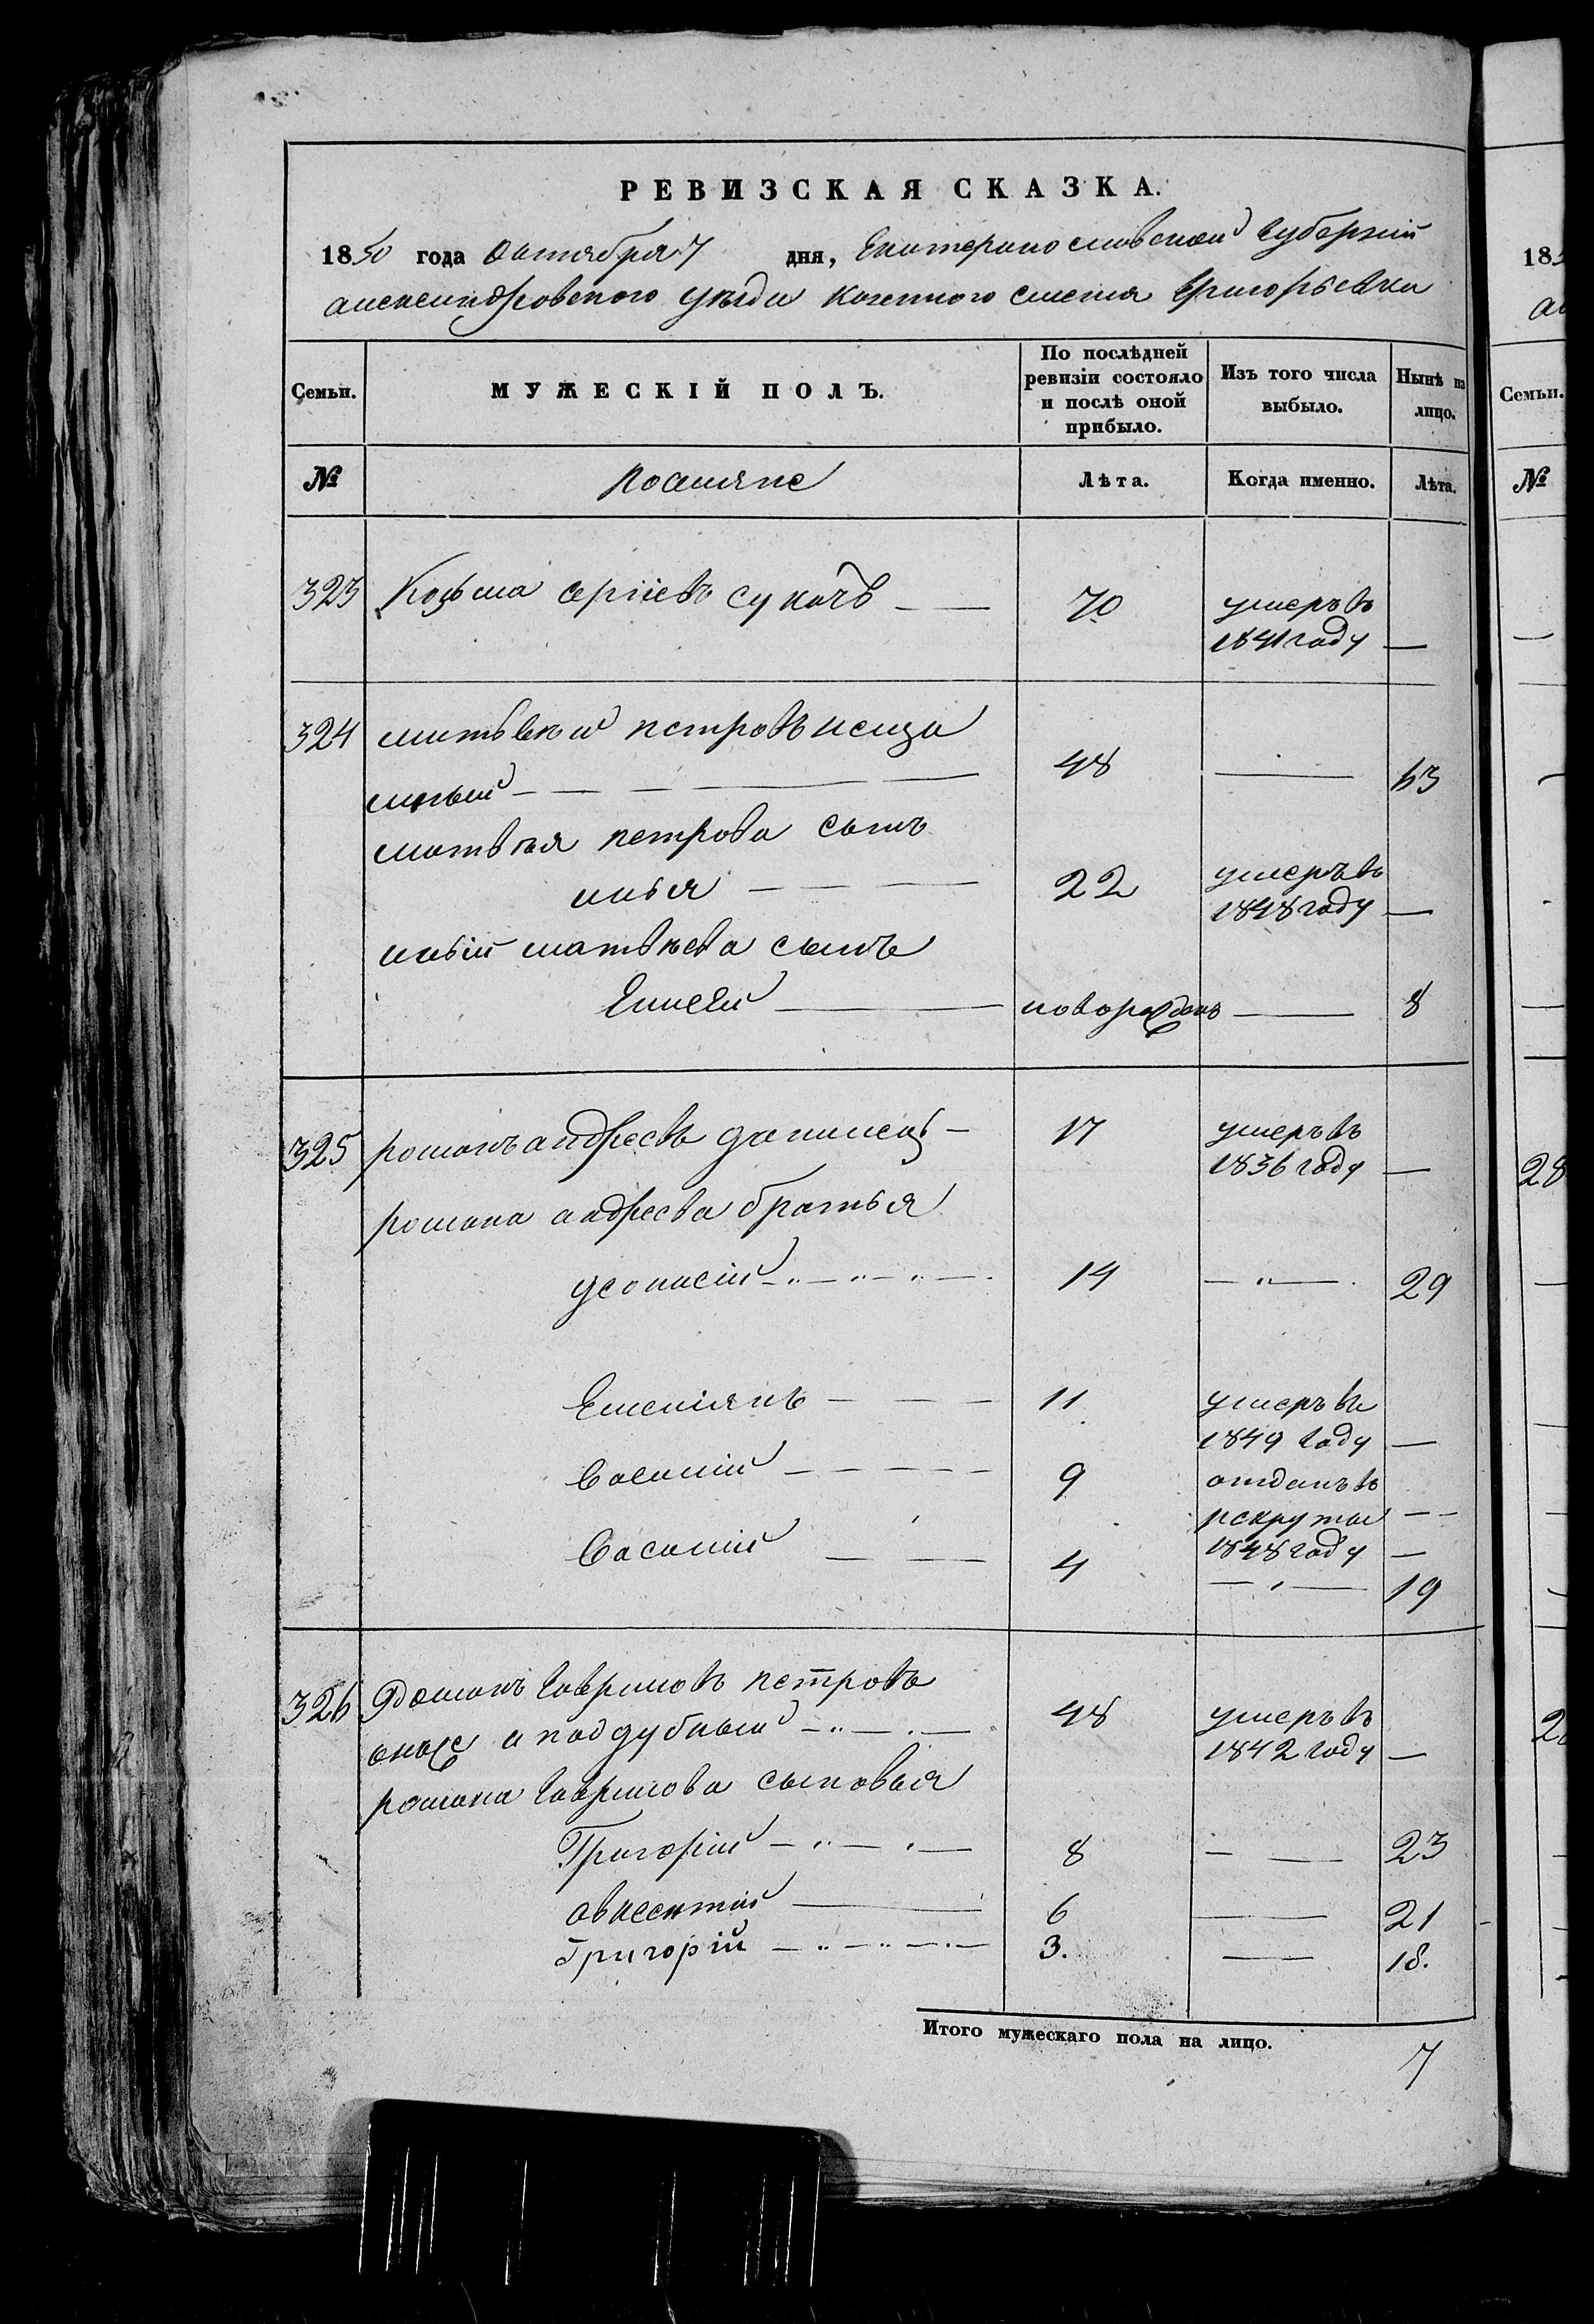 РЕВИЗСКАЯ СКАЗКА.
1850 года Октября 7 дня, Екатеринославской Губерніи
александровского уѣзда казенного селенія Григорьевки
Семьи. МУЖЕСКІЙ ПОЛЪ. По послѣдней ревизіи состояло и послѣ оной прибыло. Изъ того числа выбыло. Нынѣ на лицо.
№ поселяне Лѣта. Когда именно. Лѣта.
323 Козьма сергіевъ сукачь 70 умеръ въ
1841 году —
324 матвей петровъ
48 — 63
матвѣя петрова сынъ
илья 22 умеръ въ
1848 году —
ильи матвѣева сынъ
Елисей новорожденъ — 8
325 романъ андреевъ 17 умеръ въ
1836 году —
романа андреева братья
14 — 29
Емельянъ 11 умеръ въ
1849 году —
Василий 9 отданъ въ
рекруты —
1848 году —
Василий 4 — 19
326 Романъ Гавриловъ петровъ
онже и поддубный 48 умеръ въ
1842 году —
романа Гаврилова сыновья
Григорий 8 — 23
авксентий 6 — 21
Григорій 3. — 18.
Итого мужескаго пола на лицо. 7
18
Семьи.
№
28